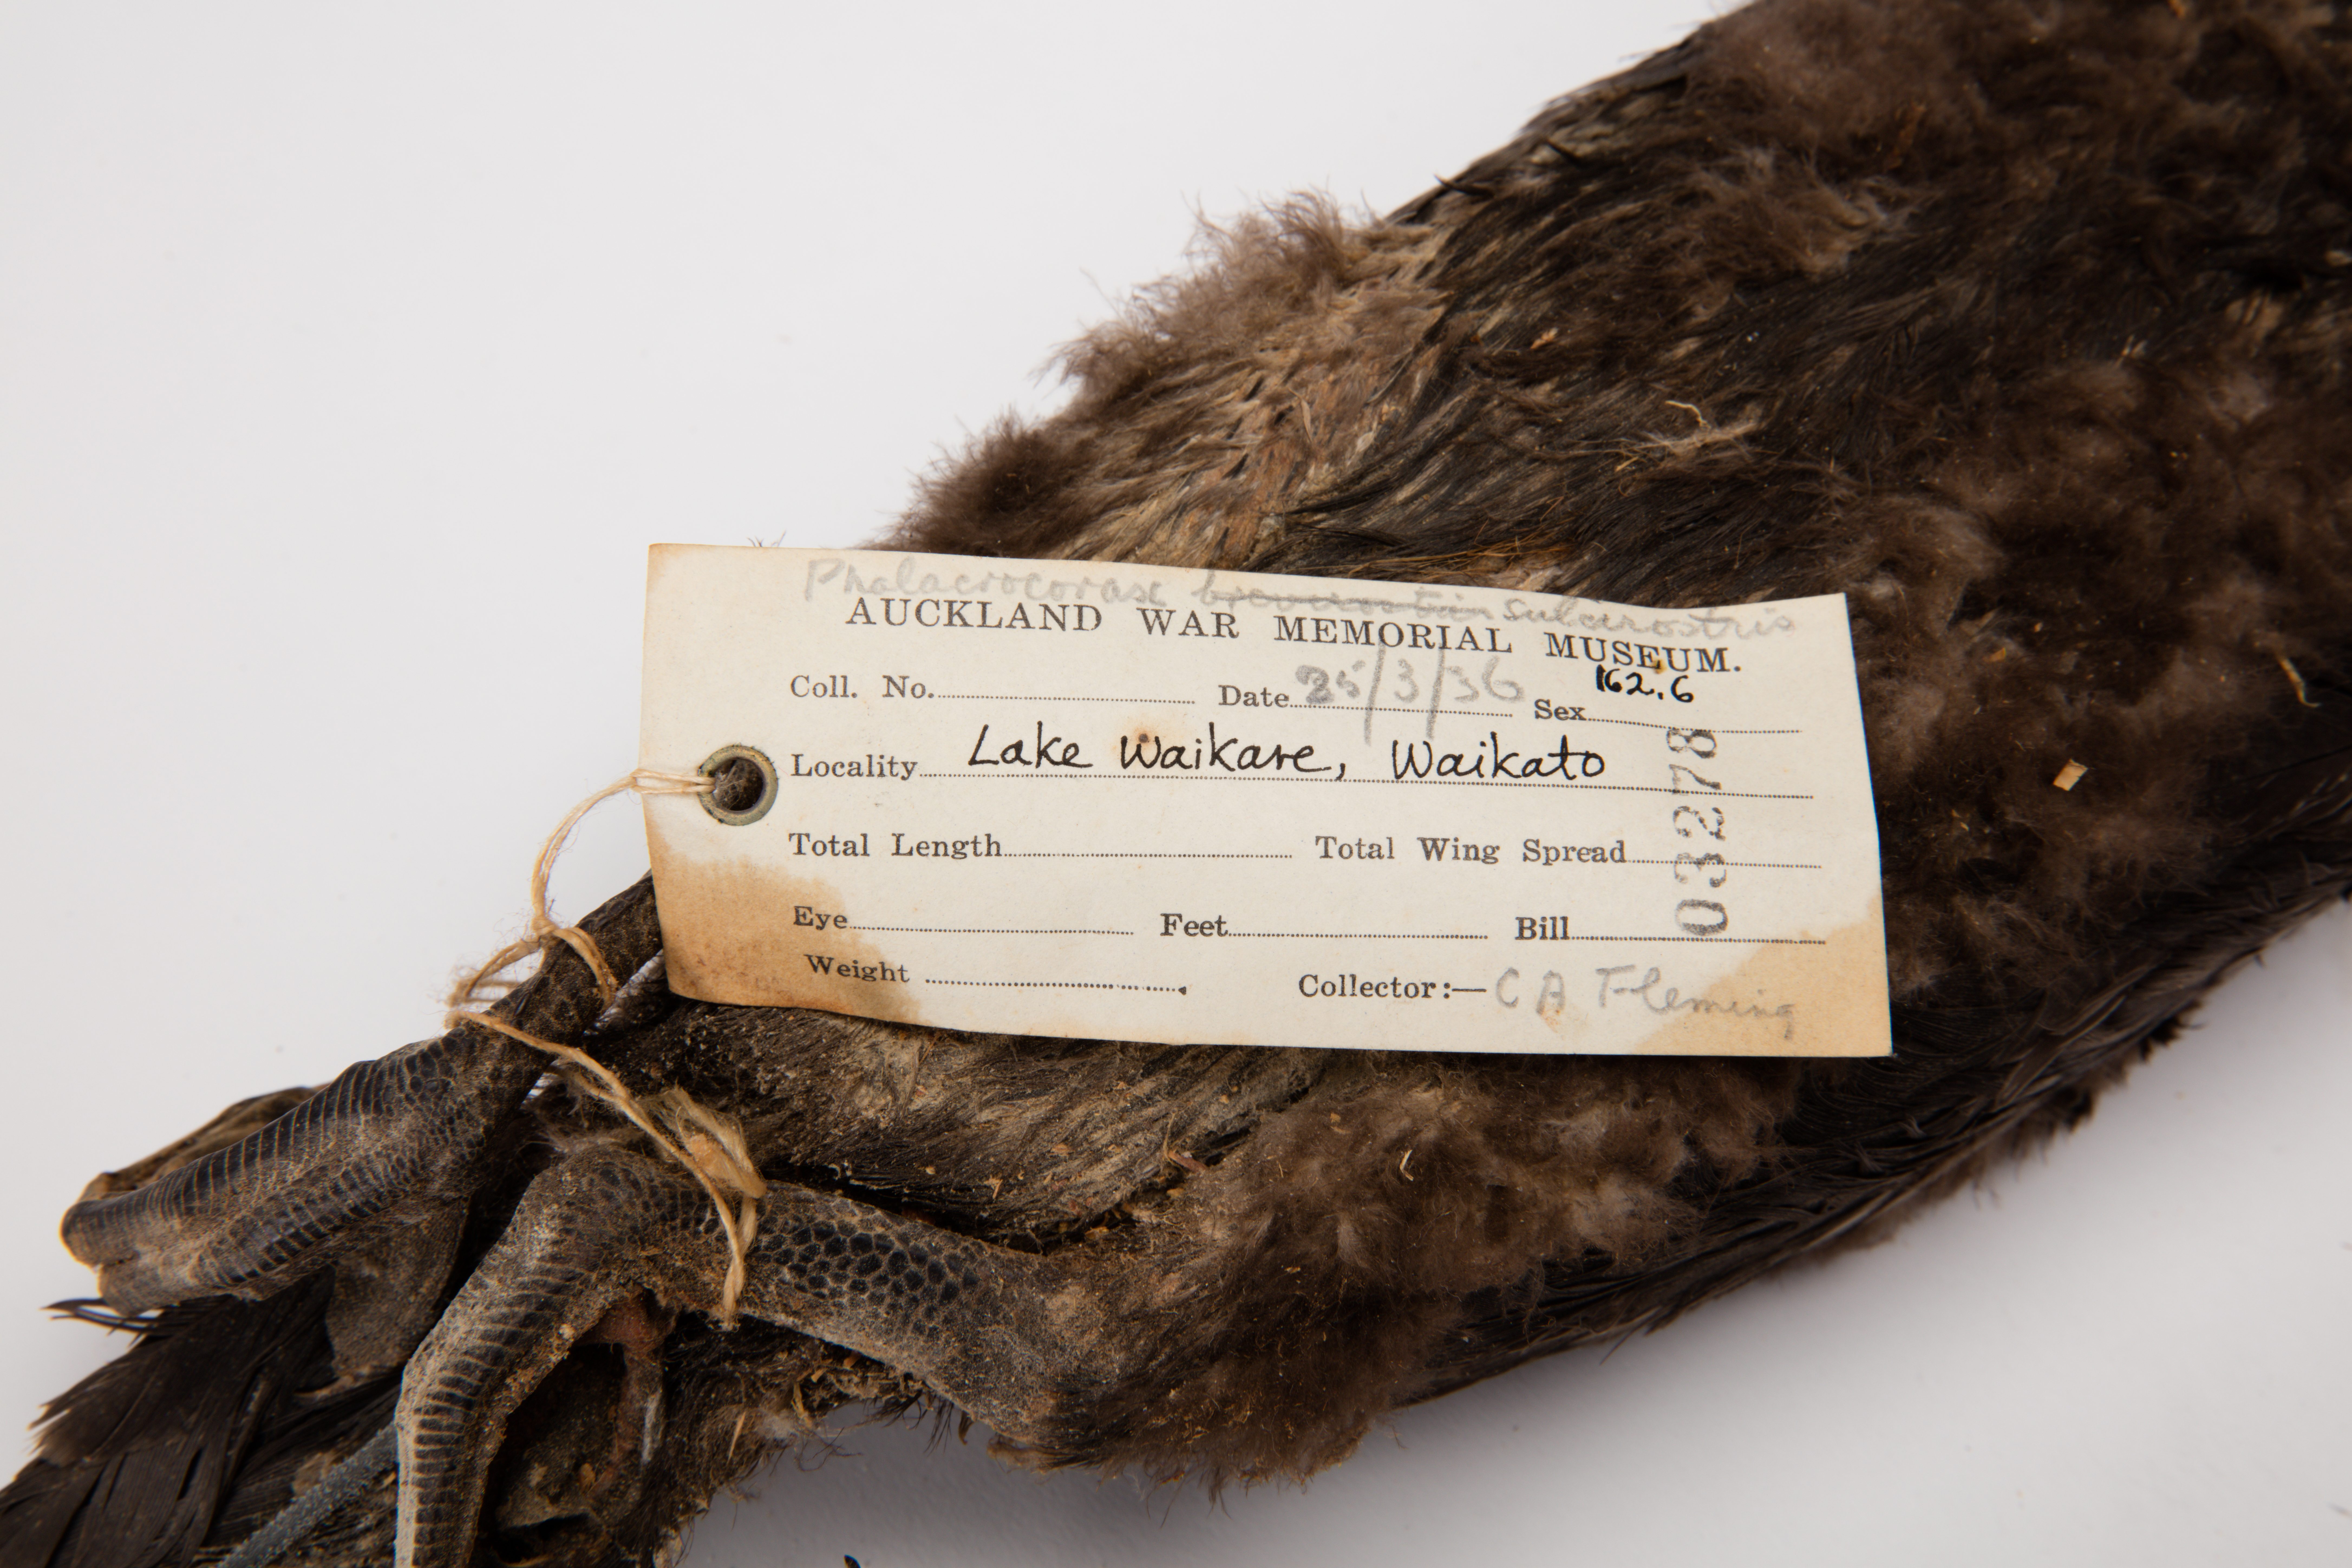 Phalacrocorax brevirostris sulcirostris
AUCKLAND WAR MEMORIAL MUSEUM.
Coll. No. Date 25/3/36 Sex 162.6
Locality Lake Waikare, Waikato
Total Length Total Wing Spread
Eye Feet Bill
Weight Collector:— C A Fleming
03278